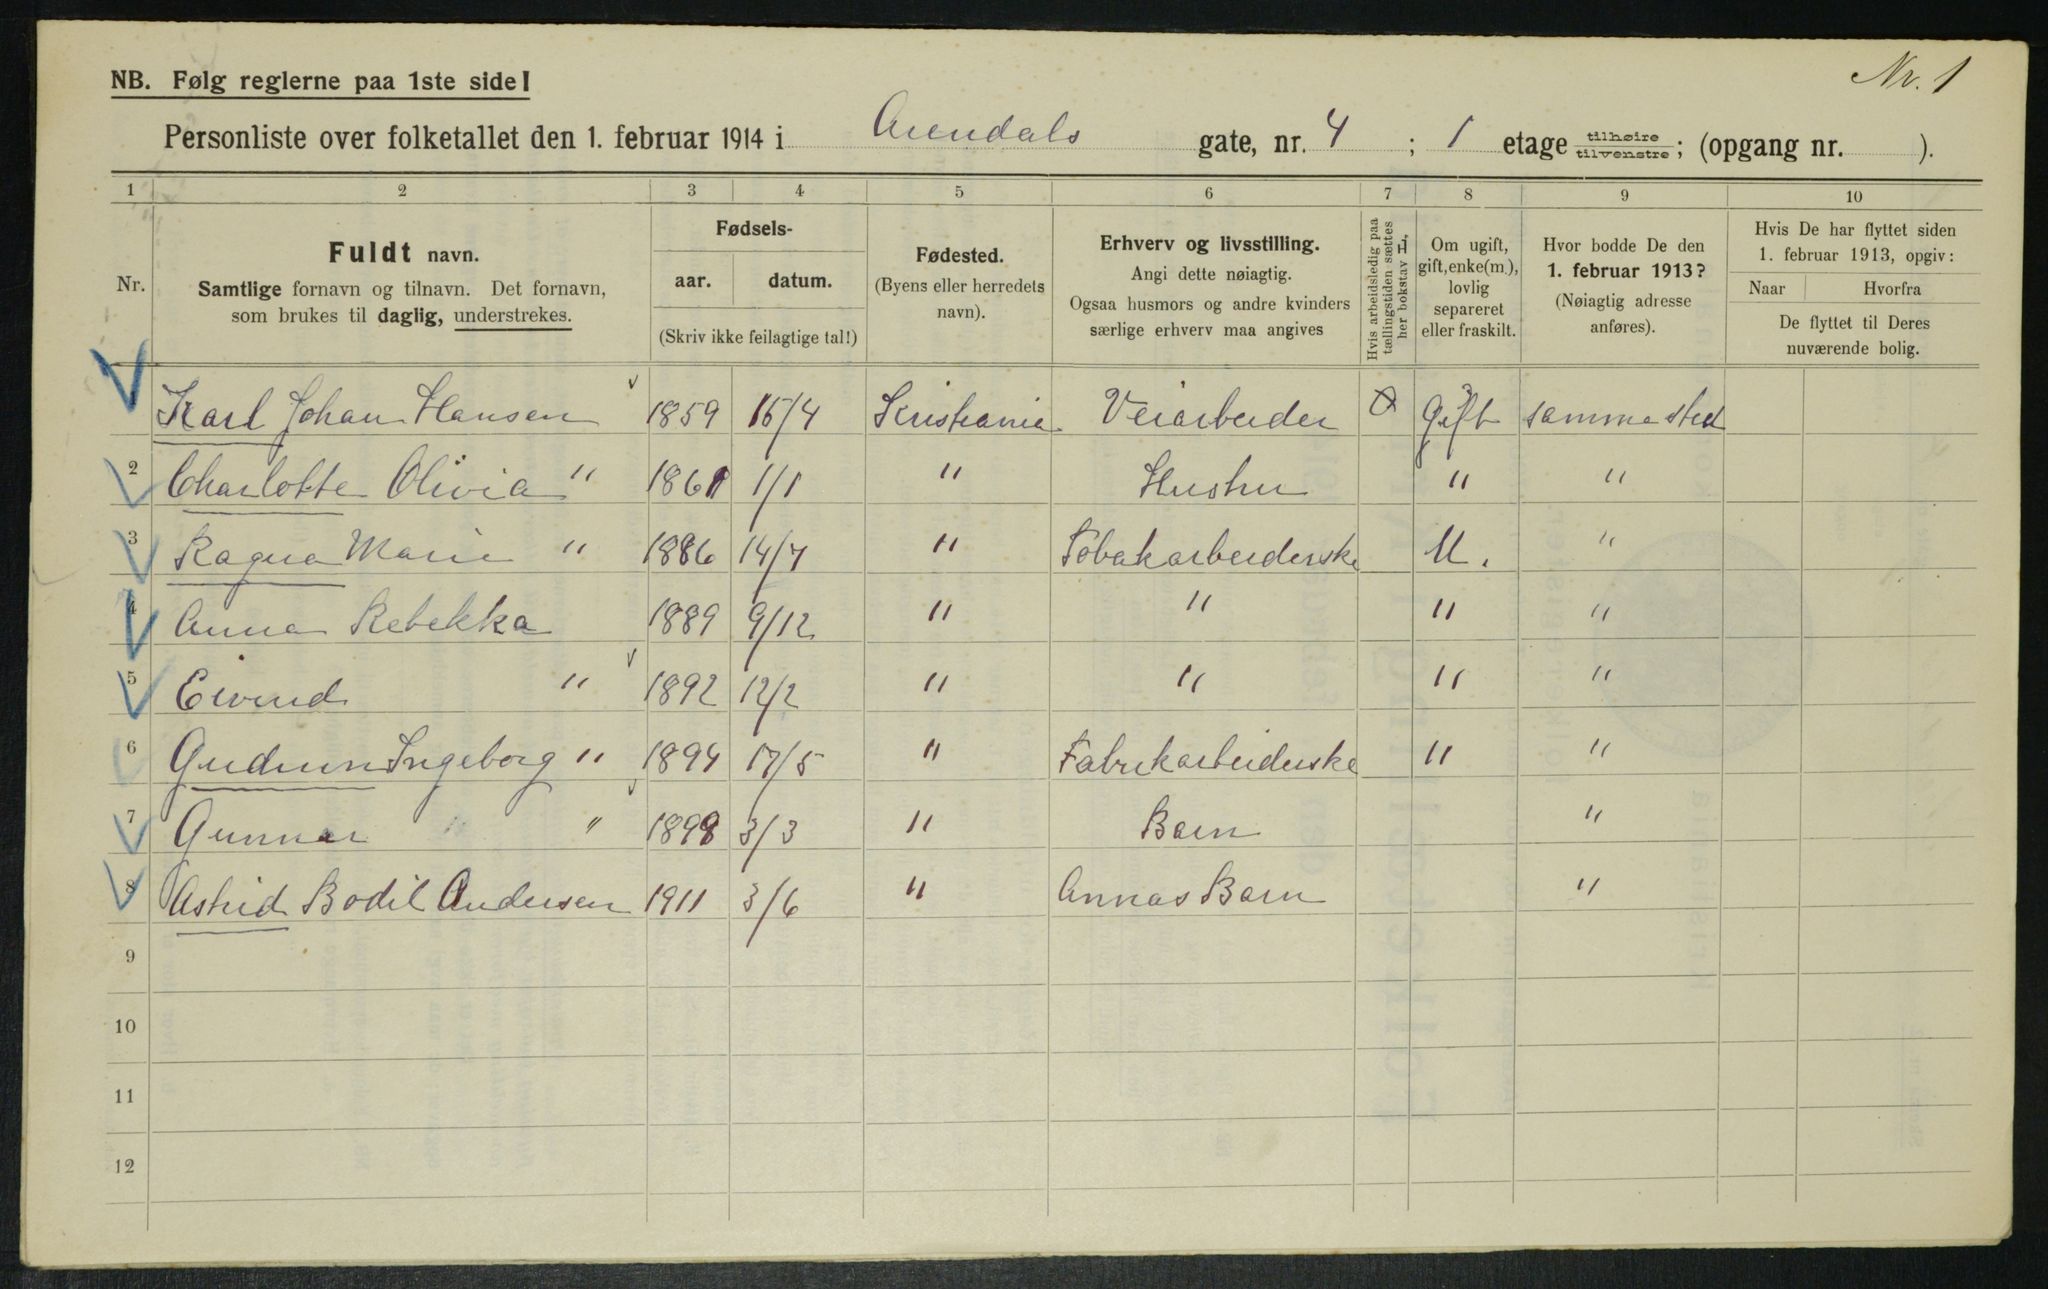 Nr. 1
NB. Følg reglerne paa 1ste side!
Personliste over folketallet den 1. februar 1914 i Arendals gate, nr. 4 ; 1 etage tilhøire tilvenstre ; (opgang nr. ).
1 2 3 4 5 6 7 8 9 10
Nr.
Fuldt navn.
Samtlige fornavn og tilnavn. Det fornavn,
som brukes til daglig, understrekes.
Fødsels-
aar. datum.
(Skriv ikke feilagtige tal!)
Fødested.
(Byens eller herredets
navn).
Erhverv og livsstilling.
Angi dette nøiagtig.
Ogsaa husmors og andre kvinders
særlige erhverv maa angives
Hvis arbeidsledig paa
tællingstiden sættes
her bokstav L.
Om ugift,
gift, enke(m.),
lovlig
separeret
eller fraskilt.
Hvor bodde De den
1. februar 1913?
(Nøiagtig adresse
anføres).
Hvis De har flyttet siden
1. februar 1913, opgiv:
Naar Hvorfra
De flyttet til Deres
nuværende bolig.
Karl Johan Hansen 1859 15/4 Kristiania Veiarbeider Gift samme sted
2 Charlotte Olivia " 1861 1/1 " Hustru " "
3 Ragna Marie " 1886 14/7 " Tobakarbeiderske U. "
4 Anna Rebekka 1889 9/12 " " " "
5 Eivind " 1892 12/2 " " " "
6 Gudrun Ingeborg " 1894 17/5 " Fabrikarbeiderske " "
7 Gunnar " " 1898 3/3 " Barn "
8 Astrid Bodil Andersen 1911 3/6 " Annas Barn "
9
10
11
12